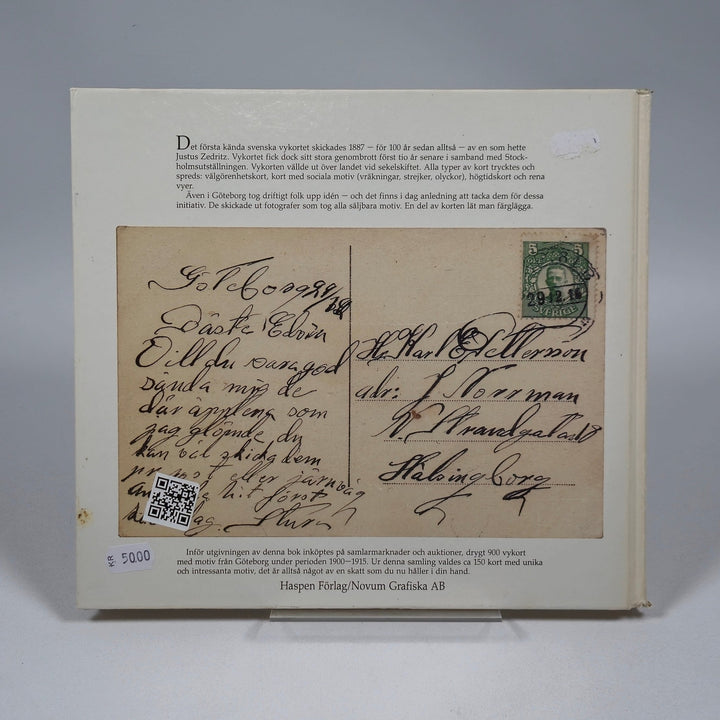 Det första kända svenska vykortet skickades 1887 – för 100 år sedan alltså – av en som hette
Justus Zedritz. Vykortet fick dock sitt stora genombrott först tio år senare i samband med Stock-
holmsutställningen. Vykorten vällde ut över landet vid sekelskiftet. Alla typer av kort trycktes och
spreds: välgörenhetskort, kort med sociala motiv (vräkningar, strejker, olyckor), högtidskort och rena
vyer.
Även i Göteborg tog driftigt folk upp idén – och det finns i dag anledning att tacka dem för dessa
initiativ. De skickade ut fotografer som tog alla säljbara motiv. En del av korten lät man färglägga.
Göteborg 29/12
Bäste Edvin
Vill du vara god
sända mig de
där äpplena som
jag glömde du
kan väl skicka dem
per post eller järnväg
hit först
Sture
5 5
29.12.16
SVERIGE
Hr Karl E Pettersson
adr: J Norrman
N. Strandgatan
Hälsingborg
KR 50.00
Inför utgivningen av denna bok inköptes på samlarmarknader och auktioner, drygt 900 vykort
med motiv från Göteborg under perioden 1900–1915. Ur denna samling valdes ca 150 kort med unika
och intressanta motiv, det är alltså något av en skatt som du nu håller i din hand.
Haspen Förlag/Novum Grafiska AB